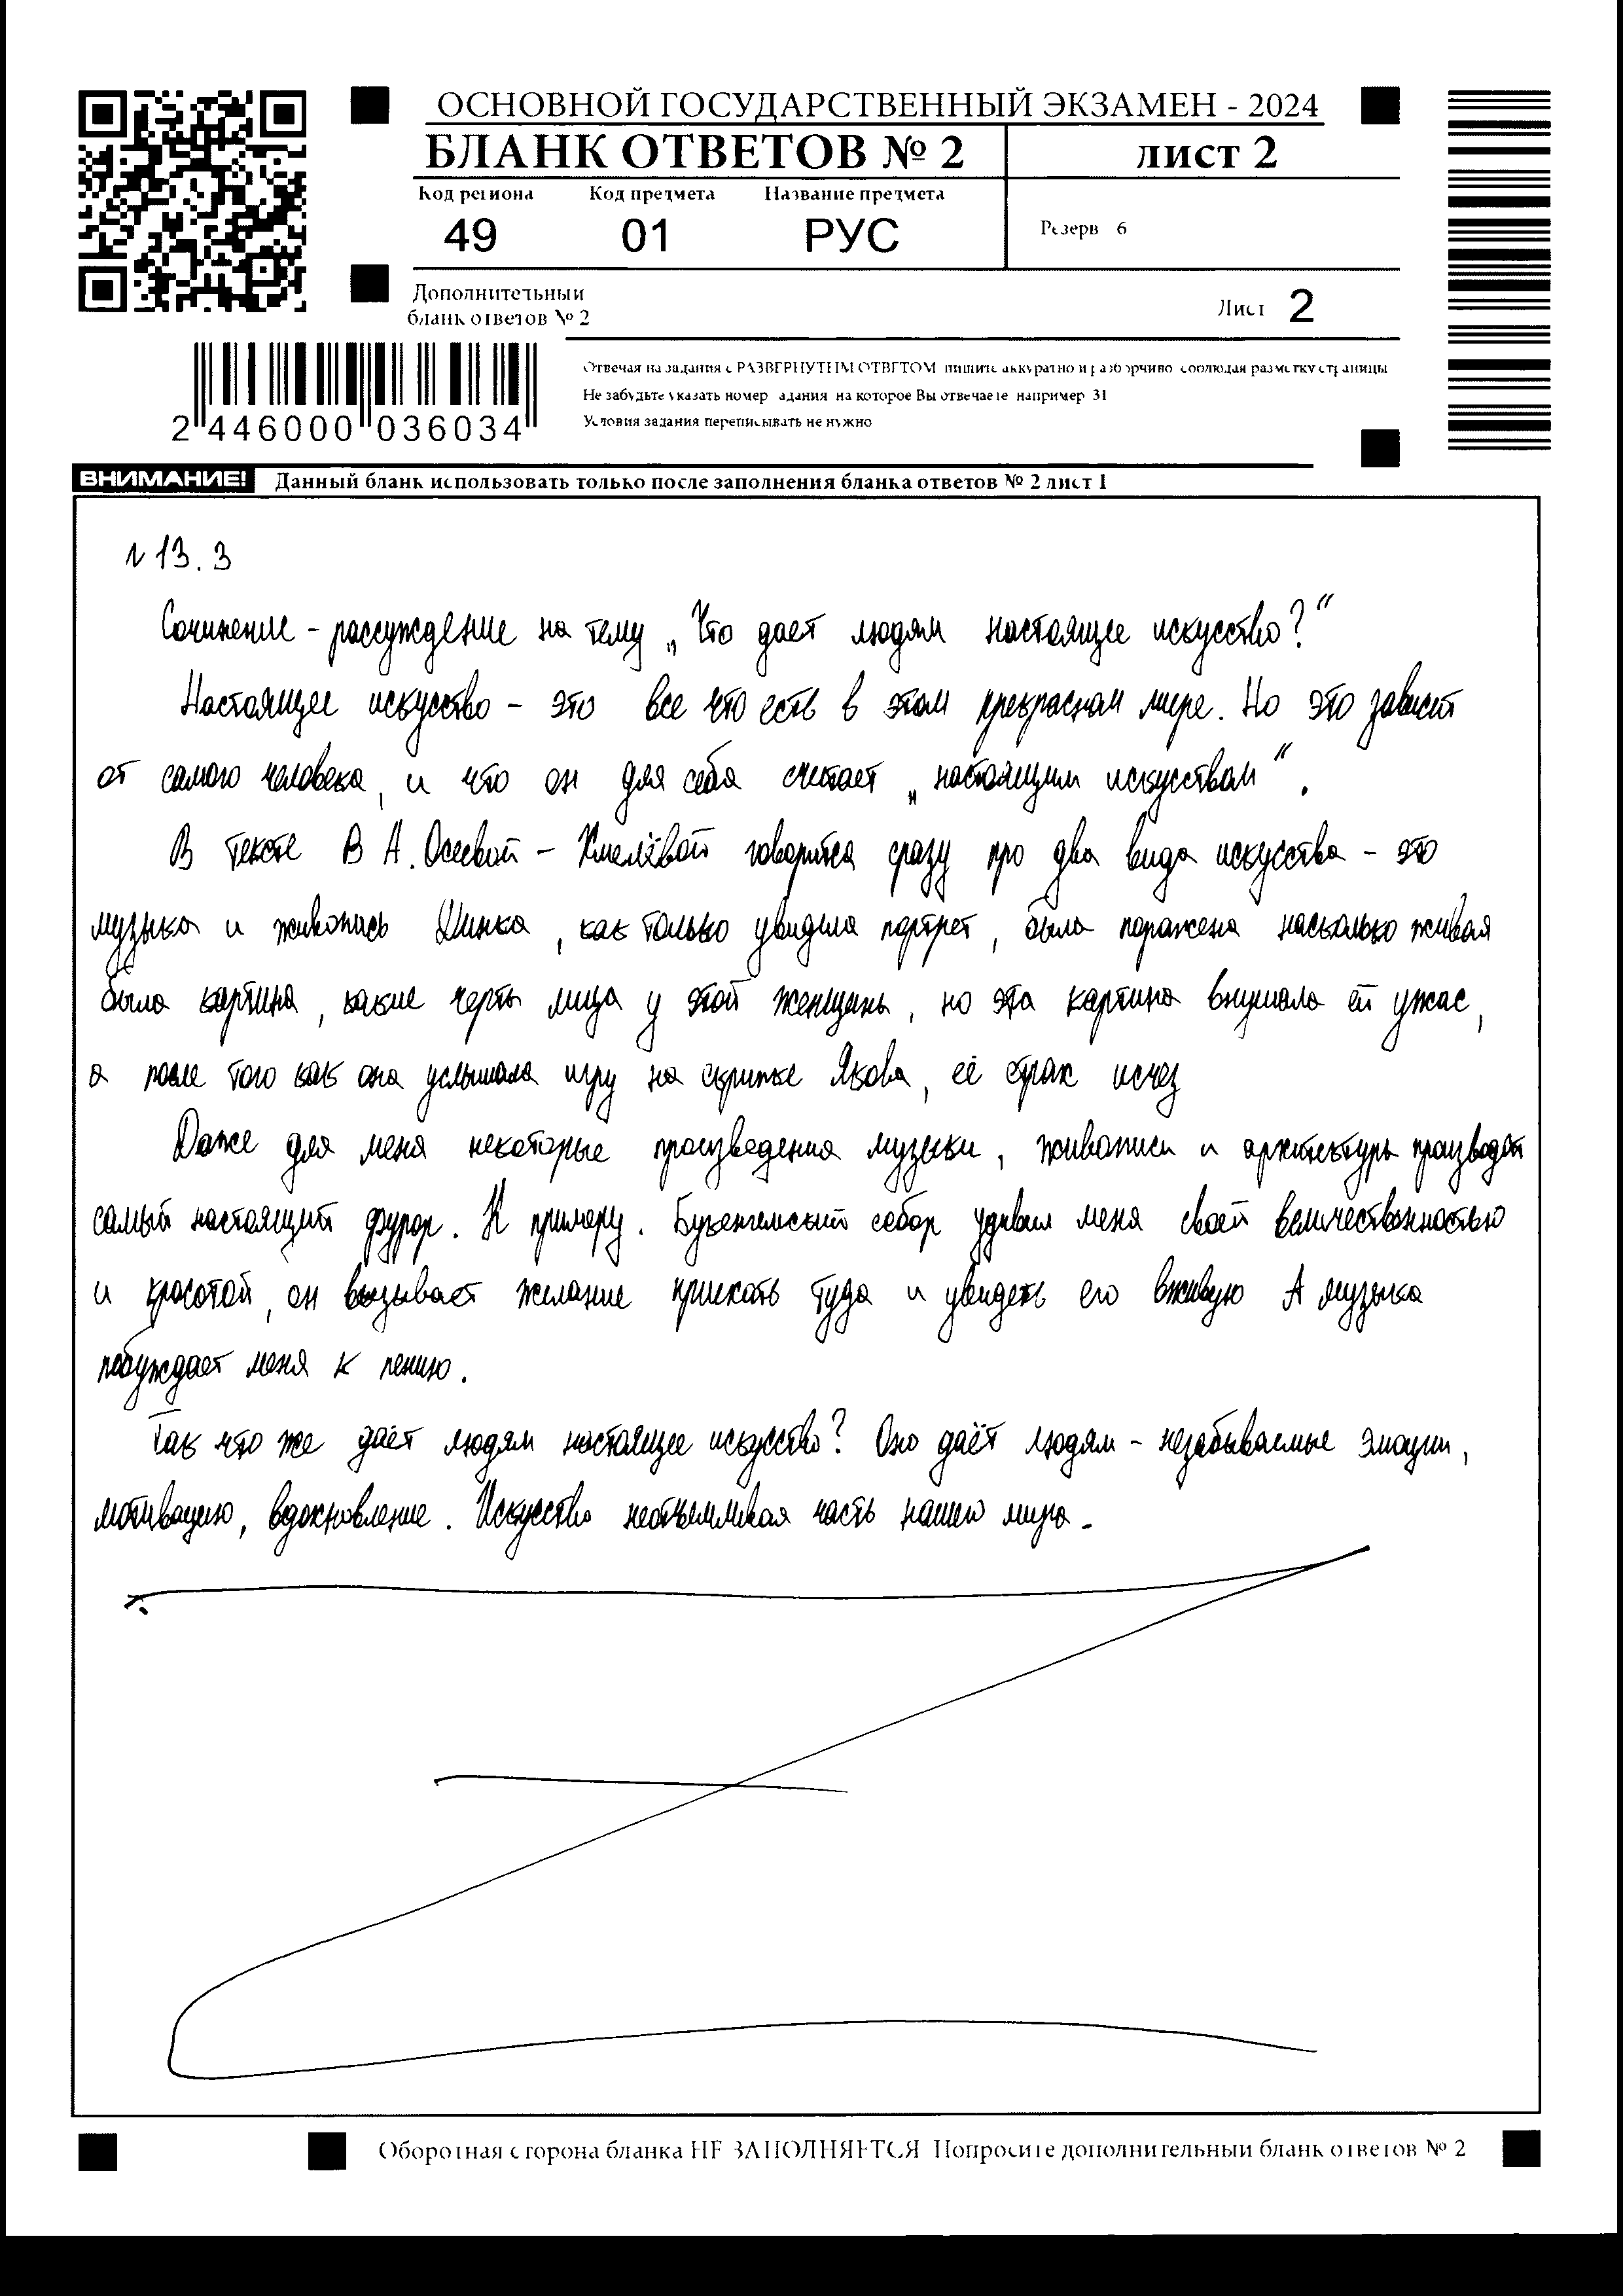 ОСНОВНОЙ ГОСУДАРСТВЕННЫЙ ЭКЗАМЕН - 2024
БЛАНК ОТВЕТОВ № 2 лист 2
Код региона Код предмета Название предмета
49 01 РУС
Резерв 6
Дополнительный
бланк ответов № 2
Лист 2
Отвечая на задания с РАЗВЕРНУТЫМ ОТВЕТОМ пишите аккуратно и разборчиво соблюдая разметку страницы
Не забудьте указать номер задания на которое Вы отвечаете например 31
Условия задания переписывать не нужно
2 446000 036034
ВНИМАНИЕ! Данный бланк использовать только после заполнения бланка ответов № 2 лист 1
№ 13.3
Сочинение - рассуждение на тему „Что дает людям настоящее искусство?“
Настоящее искусство - это все что есть в этом прекрасном мире. Но это зависит
от самого человека, и что он для себя считает „настоящим искусством“.
В тексте В А. Осеевой - Хмелёвой говорится сразу про два вида искусства - это
музыка и живопись Динка, как только увидила портрет, была поражена насколько живая
была картина, какие черты лица у этой женщины, но эта картина внушала ей ужас,
а после того как она услышала игру на скрипке Якова, её страх исчез
Даже для меня некоторые произведения музыки, живописи и архитектуры производят
самый настоящий фурор. К примеру. Букенгемский собор удивил меня своей величественностью
и красотой, он вызывает желание приехать туда и увидеть его вживую А музыка
побуждает меня к пению.
Так что же даёт людям настоящее искусство? Оно даёт людям - незабываемые эмоции,
мотивацию, вдохновление. Искусство неотъемлевая часть нашего мира.
Оборотная сторона бланка НЕ ЗАПОЛНЯЕТСЯ Попросите дополнительный бланк ответов № 2